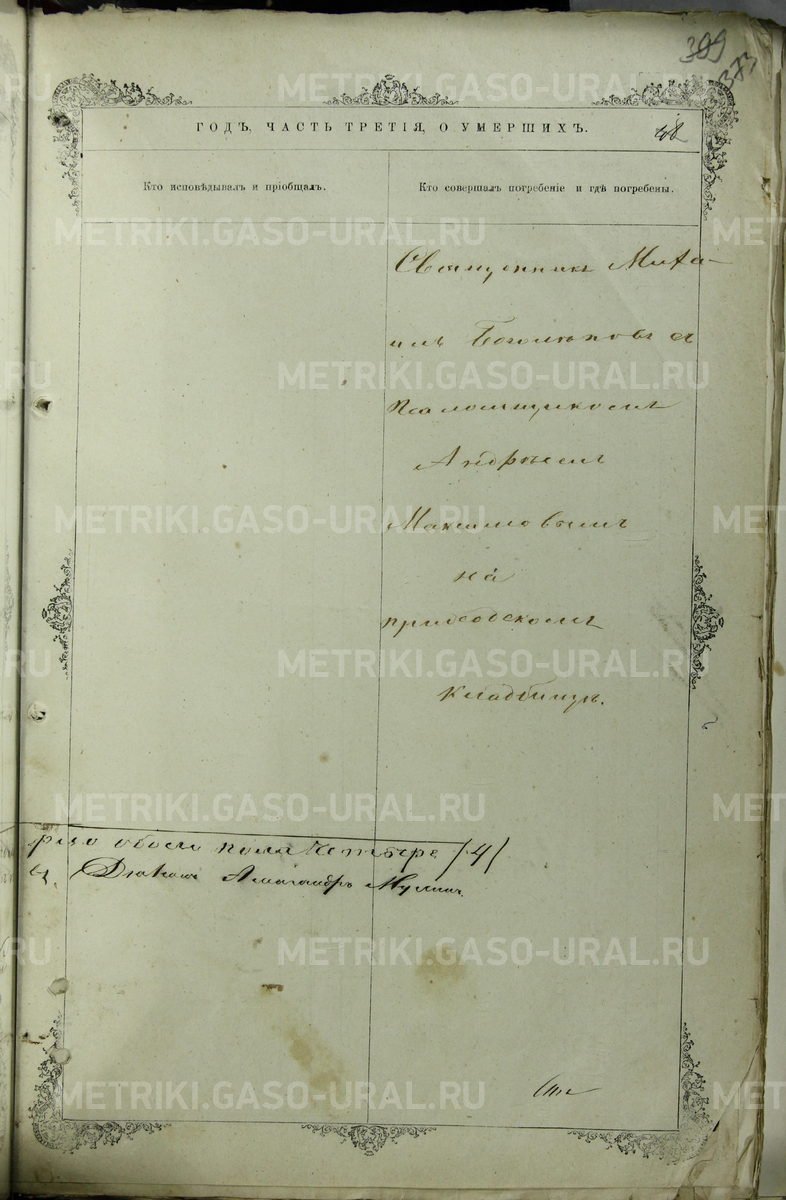 399
373
ГОДЪ, ЧАСТЬ ТРЕТІЯ, О УМЕРШИХЪ.
Кто исповѣдывалъ и пріобщалъ.
Кто совершалъ погребеніе и гдѣ погребены.
Священникъ Миха-
илъ съ
псаломщикомъ
Андреемъ
Максимовымъ
на
приходскомъ
кладбищѣ.
обоего пола четыре /4/
Діаконъ Александръ
METRIKI.GASO-URAL.RU